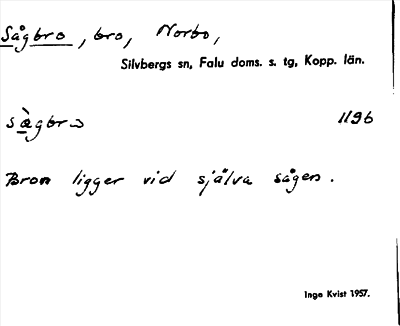 Sågbro, bro, Norbo,
Silvbergs sn, Falu doms. s. tg, Kopp. län.
sàgbro 1196
Bron ligger vid själva sågen.
Inga Kvist 1957.